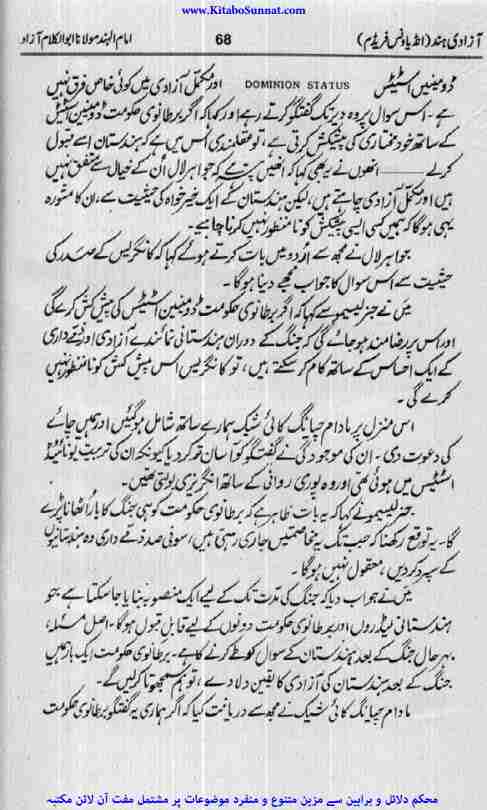 www.KitaboSunnat.com
آزادی ہند (انڈیا ونس فریڈم) 68 امام الہند مولانا ابوالکلام آزاد
ڈومینین اسٹیٹس DOMINION STATUS اور مکمل آزادی میں کوئی خاص فرق نہیں
ہے۔ اس سوال پر وہ دیر تک گفتگو کرتے رہے اور کہا کہ اگر برطانوی حکومت ڈومینین اسٹیٹس
کے ساتھ خود مختاری کی پیشکش کرتی ہے، تو عقلمندی اس میں ہے کہ ہندستان اسے قبول
کرلے ——— انھوں نے یہ بھی کہا کہ انھیں پتہ ہے کہ جواہر لال اُن کے خیال سے متفق نہیں
ہیں اور مکمل آزادی چاہتے ہیں، لیکن ہندستان کے ایک خیر خواہ کی حیثیت سے، ان کا مشورہ
یہی ہوگا کہ ہمیں کسی ایسی پیشکش کو نا منظور نہیں کرنا چاہیے۔
جواہر لال نے مجھ سے اُردو میں بات کرتے ہوئے کہا کہ کانگریس کے صدر کی
حیثیت سے اس سوال کا جواب مجھے دینا ہوگا۔
میں نے جنرلیسیمو سے کہا کہ اگر برطانوی حکومت ڈومینین اسٹیٹس کی پیش کش کرے گی
اور اس پر رضامند ہو جائے گی کہ جنگ کے دوران ہندستانی نمائندے آزادی اور ذمے داری
کے ایک احساس کے ساتھ کام کر سکتے ہیں، تو کانگریس اس پیش کش کو نا منظور نہیں
کرے گی۔
اس منزل پر مادام چیانگ کائی شیک ہمارے ساتھ شامل ہوگئیں اور ہمیں چائے
کی دعوت دی۔ ان کی موجودگی نے گفتگو کو آسان تر کر دیا کیونکہ ان کی تربیت یونائیٹڈ
اسٹیٹس میں ہوئی تھی اور وہ پوری روانی کے ساتھ انگریزی بولتی تھیں۔
جنرلیسیمو نے کہا کہ یہ بات ظاہر ہے کہ برطانوی حکومت کو ہی جنگ کا بار اُٹھانا پڑے
گا۔ یہ توقع رکھنا کہ جب تک یہ مخاصمتیں جاری رہتی ہیں، سو فی صد ذمے داری وہ ہندستانیوں
کے سپرد کردیں، معقول نہیں ہوگا۔
میں نے جواب دیا کہ جنگ کی مدت تک کے لیے ایک منصوبہ بنایا جا سکتا ہے جو
ہندستانی لیڈروں اور برطانوی حکومت دونوں کے لیے قابل قبول ہوگا۔ اصل مسئلہ،
بہر حال جنگ کے بعد ہندستان کے سوال کو طے کرنے کا ہے۔ برطانوی حکومت ایک بار ہمیں
جنگ کے بعد ہندستان کی آزادی کا یقین دلا دے، تو ہم سمجھوتا کرلیں گے۔
مادام چیانگ کائی شیک نے مجھ سے دریافت کیا کہ اگر ہماری یہ گفتگو برطانوی حکومت
محکم دلائل و براہین سے مزین متنوع و منفرد موضوعات پر مشتمل مفت آن لائن مکتبہ